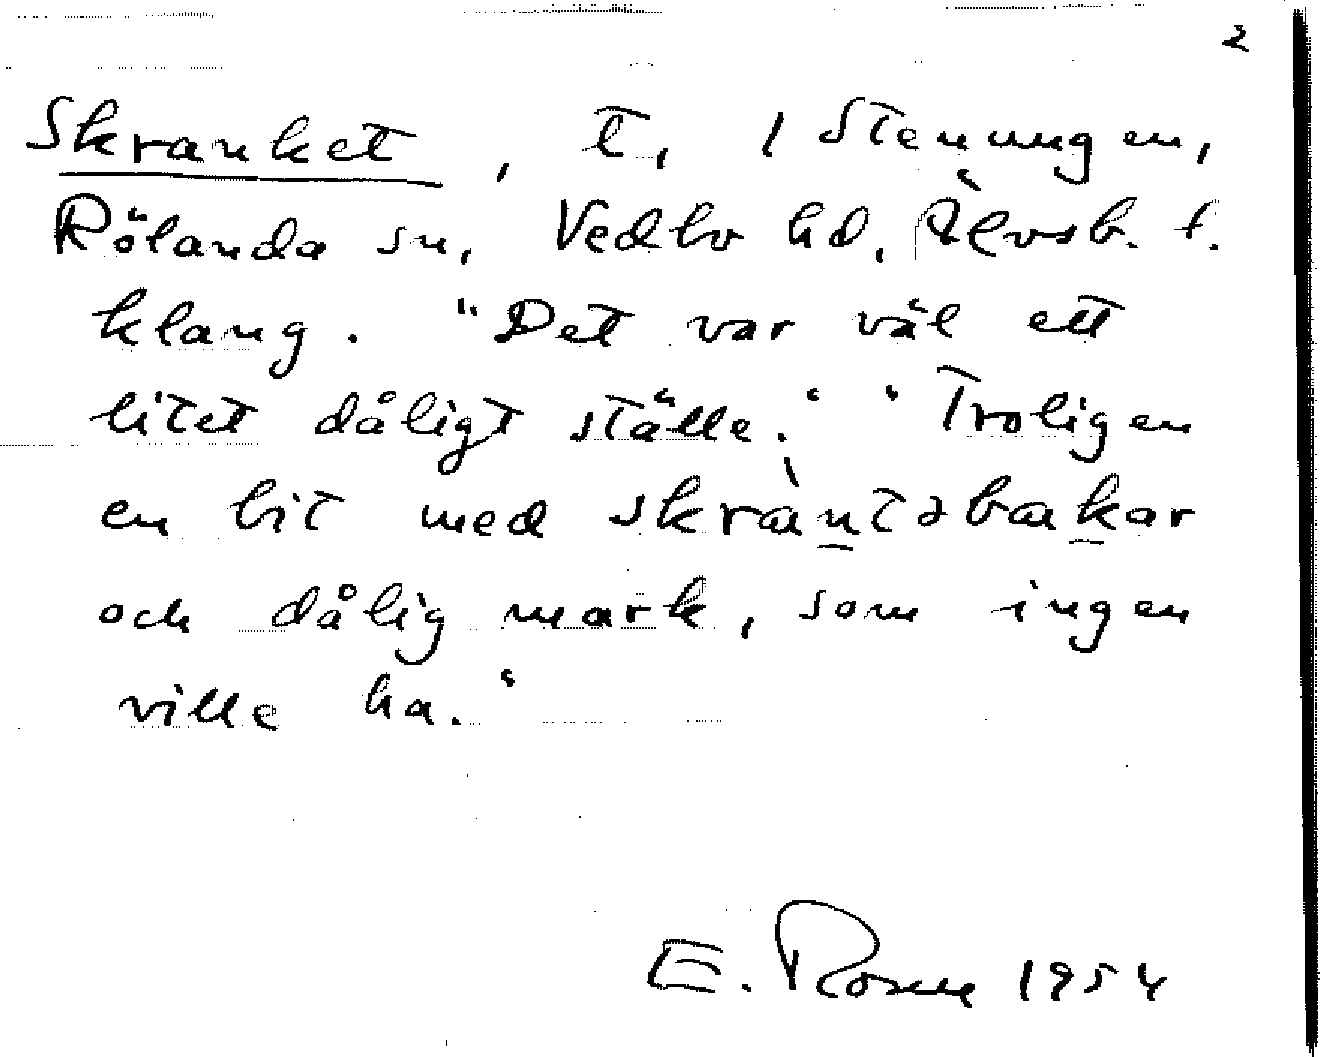 2
Skranket, t, 1 Stenungen,
Rölanda sn, Vedbo hd, Älvsb. l.
klang. "Det var väl ett
litet dåligt ställe." "Troligen
en bit med skràntabakar
och dålig mark, som ingen
ville ha."
E. Rosell 1954